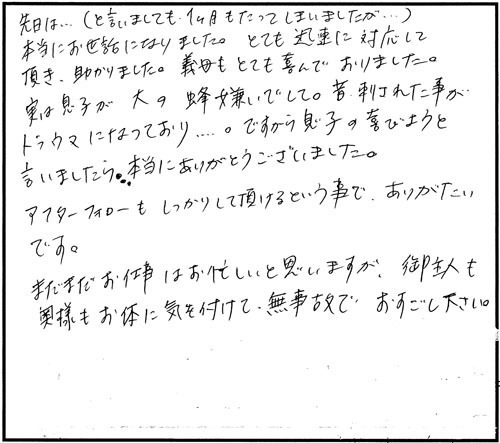 先日は…(と言いましても1ヶ月もたってしまいましたが…)
本当にお世話になりました。とても迅速に対応して
頂き、助かりました。義母もとても喜んでおりました。
実は息子が大の蜂嫌いでして。昔、刺された事が
トラウマになっており….。ですから息子の喜びようと
言いましたら..本当にありがとうございました。
アフターフォローもしっかりして頂けるという事で、ありがたい
です。
まだまだお仕事はお忙しいと思いますが、御主人も
奥様もお体に気を付けて、無事故でおすごし下さい。